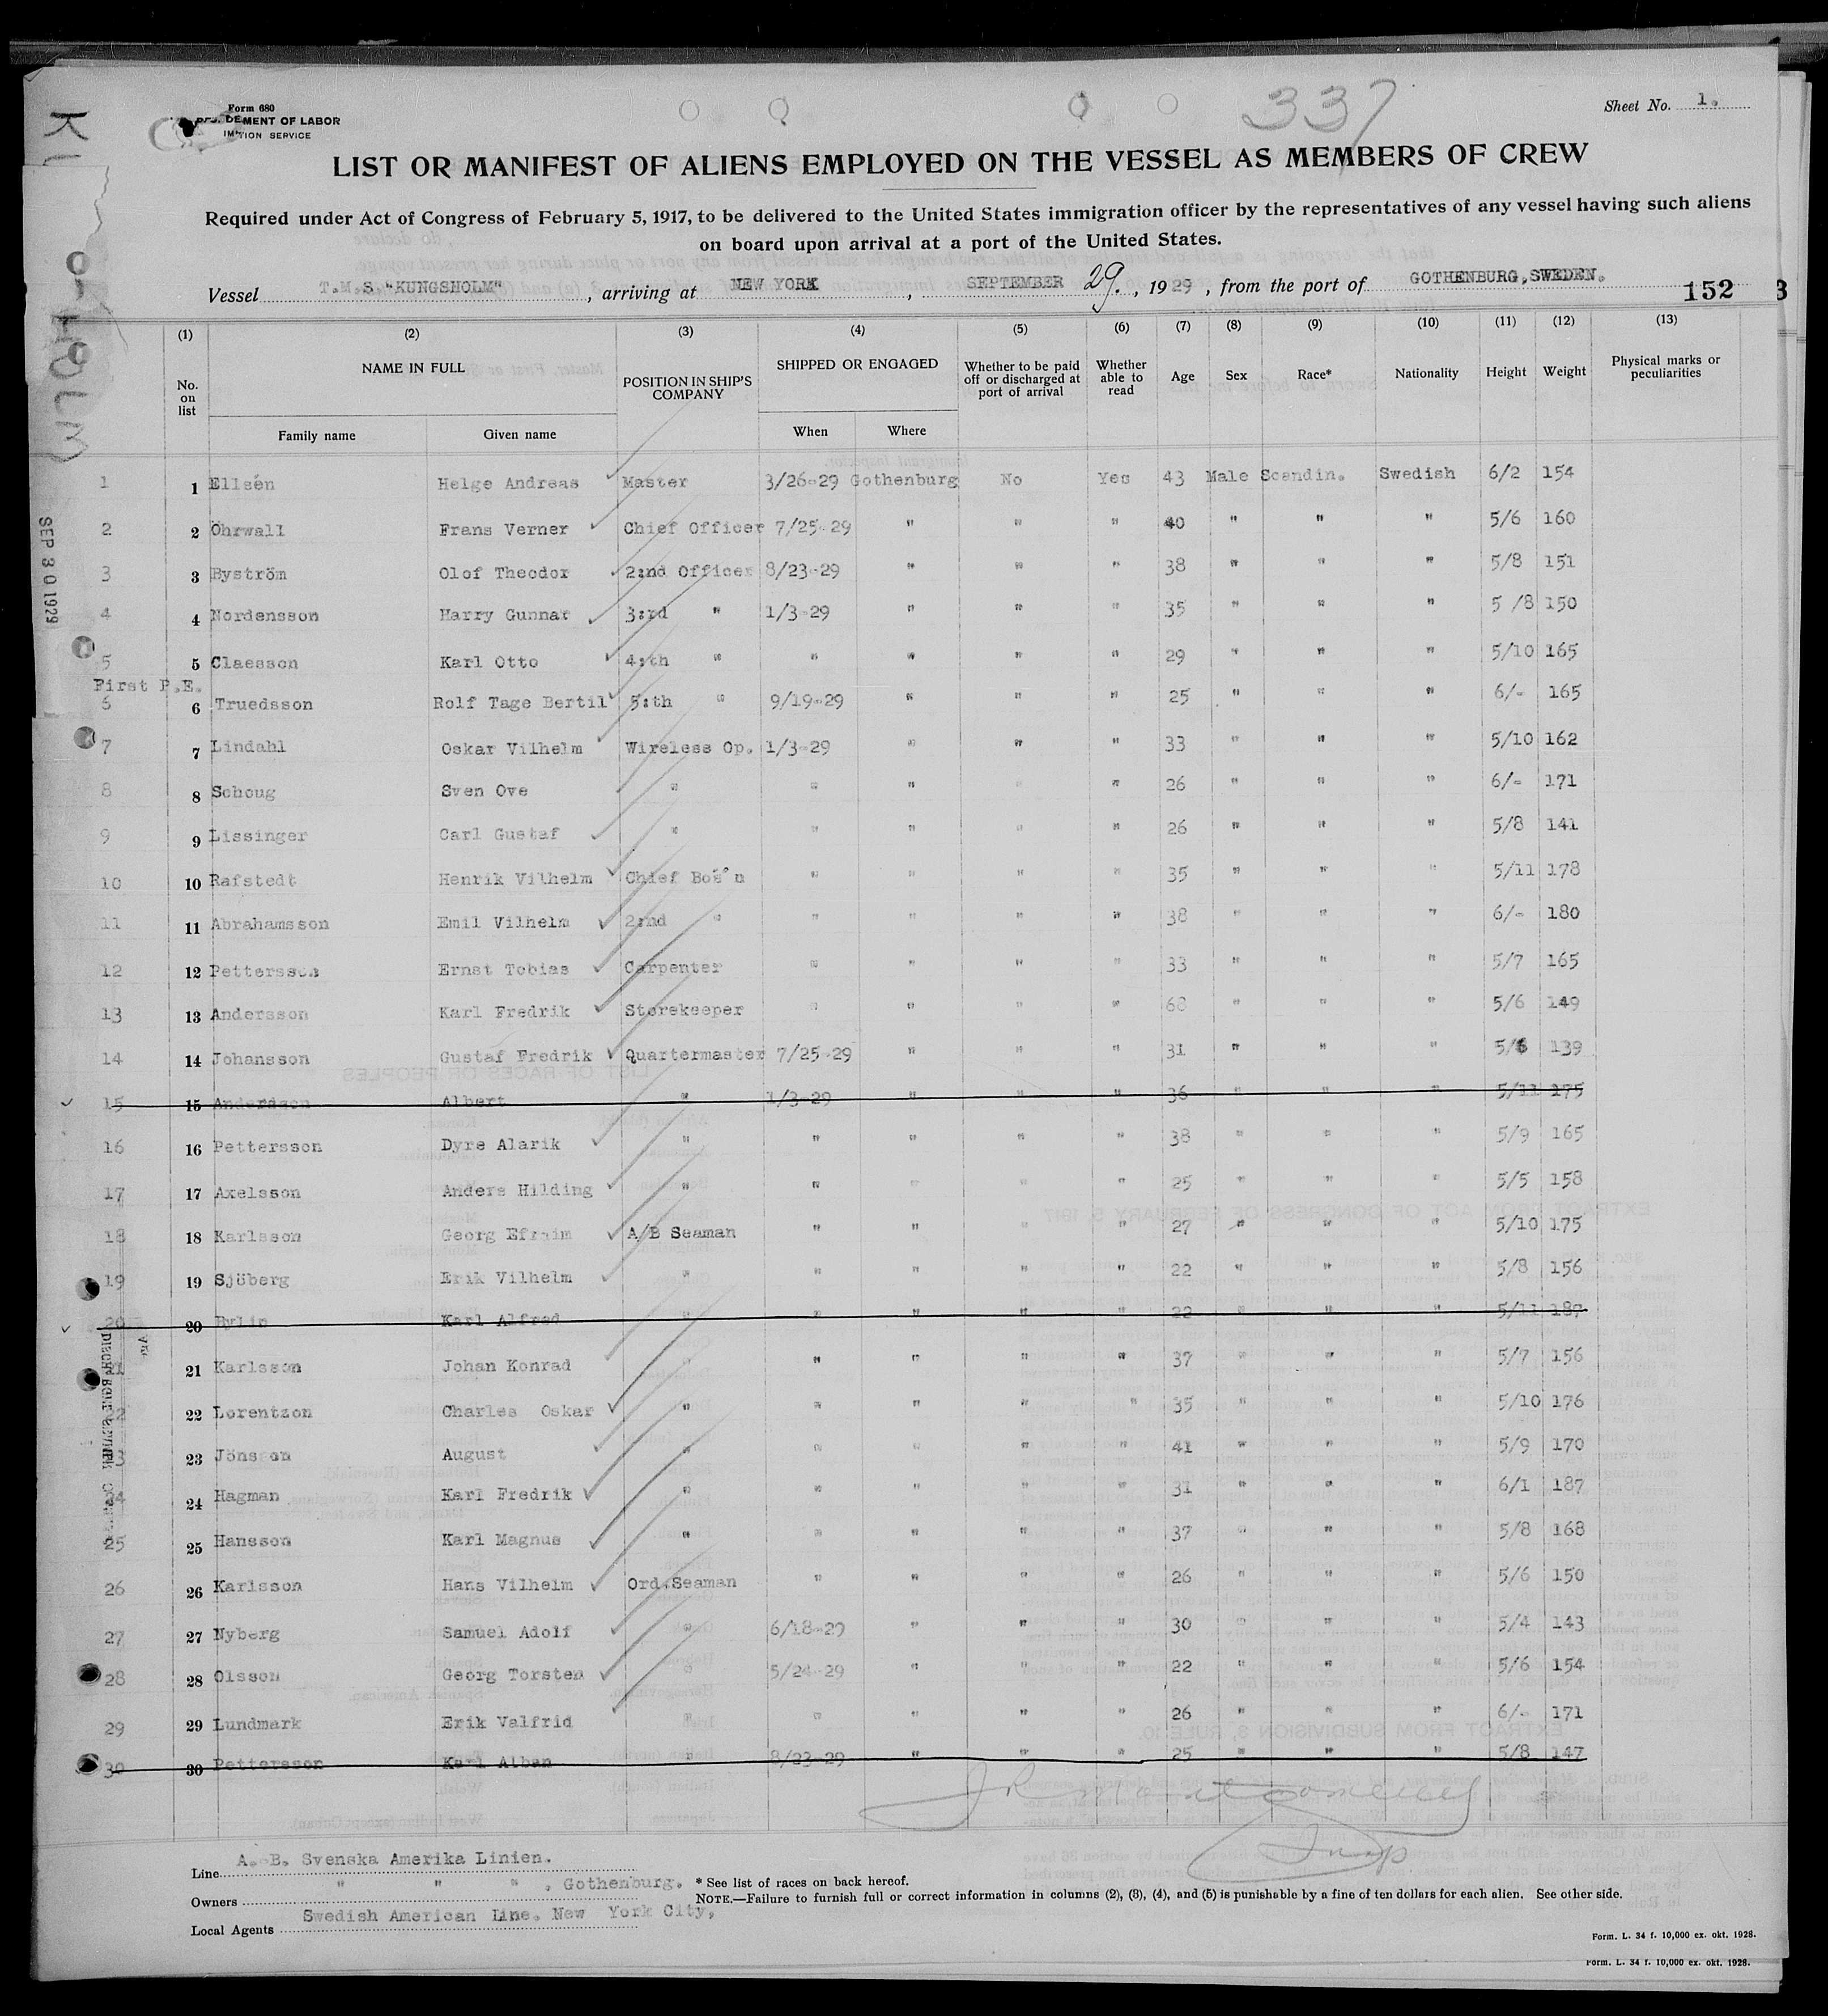 337
Sheet No. 1.
Form 680
DEPARTMENT OF LABOR
IMMIGRATION SERVICE
LIST OR MANIFEST OF ALIENS EMPLOYED ON THE VESSEL AS MEMBERS OF CREW
Required under Act of Congress of February 5, 1917, to be delivered to the United States immigration officer by the representatives of any vessel having such aliens
on board upon arrival at a port of the United States.
Vessel T.M.S."KUNGSHOLM", arriving at NEW YORK, SEPTEMBER 29., 1929, from the port of GOTHENBURG,SWEDEN. 152
(1) (2) (3) (4) (5) (6) (7) (8) (9) (10) (11) (12) (13)
No. on list NAME IN FULL POSITION IN SHIP'S COMPANY SHIPPED OR ENGAGED Whether to be paid off or discharged at port of arrival Whether able to read Age Sex Race* Nationality Height Weight Physical marks or peculiarities
Family name Given name When Where
SEP 30 1929
1 1 Ellsén Helge Andreas Master 3/26-29 Gothenburg No Yes 43 Male Scandin. Swedish 6/2 154
2 2 Öhrwall Frans Verner Chief Officer 7/25-29 " " " 40 " " " 5/6 160
3 3 Byström Olof Theodor 2:nd Officer 8/23-29 " " " 38 " " " 5/8 151
4 4 Nordensson Harry Gunnar 3:rd " 1/3-29 " " " 35 " " " 5 /8 150
5 5 Claesson Karl Otto 4:th " " " " " 29 " " " 5/10 165
First P.E.
6 6 Truedsson Rolf Tage Bertil 5:th " 9/19-29 " " " 25 " " " 6/- 165
7 7 Lindahl Oskar Vilhelm Wireless Op. 1/3-29 " " " 33 " " " 5/10 162
8 8 Schoug Sven Ove " " " " " 26 " " " 6/- 171
9 9 Lissinger Carl Gustaf " " " " " 26 " " " 5/8 141
10 10 Rafstedt Henrik Vilhelm Chief Bos'n " " " " 35 " " " 5/11 178
11 11 Abrahamsson Emil Vilhelm 2:nd " " " " " 38 " " " 6/- 180
12 12 Pettersson Ernst Tobias Carpenter " " " " 33 " " " 5/7 165
13 13 Andersson Karl Fredrik Storekeeper " " " " 60 " " " 5/6 149
14 14 Johansson Gustaf Fredrik Quartermaster 7/25-29 " " " 31 " " " 5/6 139
15 15 Andersson Albert " 1/3-29 " " " 36 " " " 5/11 175
16 16 Pettersson Dyre Alarik " " " " " 38 " " " 5/9 165
17 17 Axelsson Anders Hilding " " " " " 25 " " " 5/5 158
18 18 Karlsson Georg Efraim A/B Seaman " " " " 27 " " " 5/10 175
19 19 Sjöberg Erik Vilhelm " " " " " 22 " " " 5/8 156
20 20 Bylin Karl Alfred " " " " " 22 " " " 5/11 187
21 21 Karlsson Johan Konrad " " " " " 37 " " " 5/7 156
22 22 Lorentzon Charles Oskar " " " " " 35 " " " 5/10 176
23 23 Jönsson August " " " " " 41 " " " 5/9 170
24 24 Hagman Karl Fredrik " " " " " 31 " " " 6/1 187
25 25 Hansson Karl Magnus " " " " " 37 " " " 5/8 168
26 26 Karlsson Hans Vilhelm Ord.Seaman " " " " 26 " " " 5/6 150
27 27 Nyberg Samuel Adolf " 6/18-29 " " " 30 " " " 5/4 143
28 28 Olsson Georg Torsten " 5/24-29 " " " 22 " " " 5/6 154
29 29 Lundmark Erik Valfrid " " " " " 26 " " " 6/- 171
30 30 Pettersson Karl Alban " 8/23-29 " " " 25 " " " 5/8 147
Line A.-B. Svenska Amerika Linien.
Owners " " " , Gothenburg.
Local Agents Swedish American Line. New York City,
* See list of races on back hereof.
NOTE.—Failure to furnish full or correct information in columns (2), (3), (4), and (5) is punishable by a fine of ten dollars for each alien. See other side.
Form. L. 34 f. 10,000 ex. okt. 1928.
Form. L. 34 f. 10,000 ex. okt. 1928.